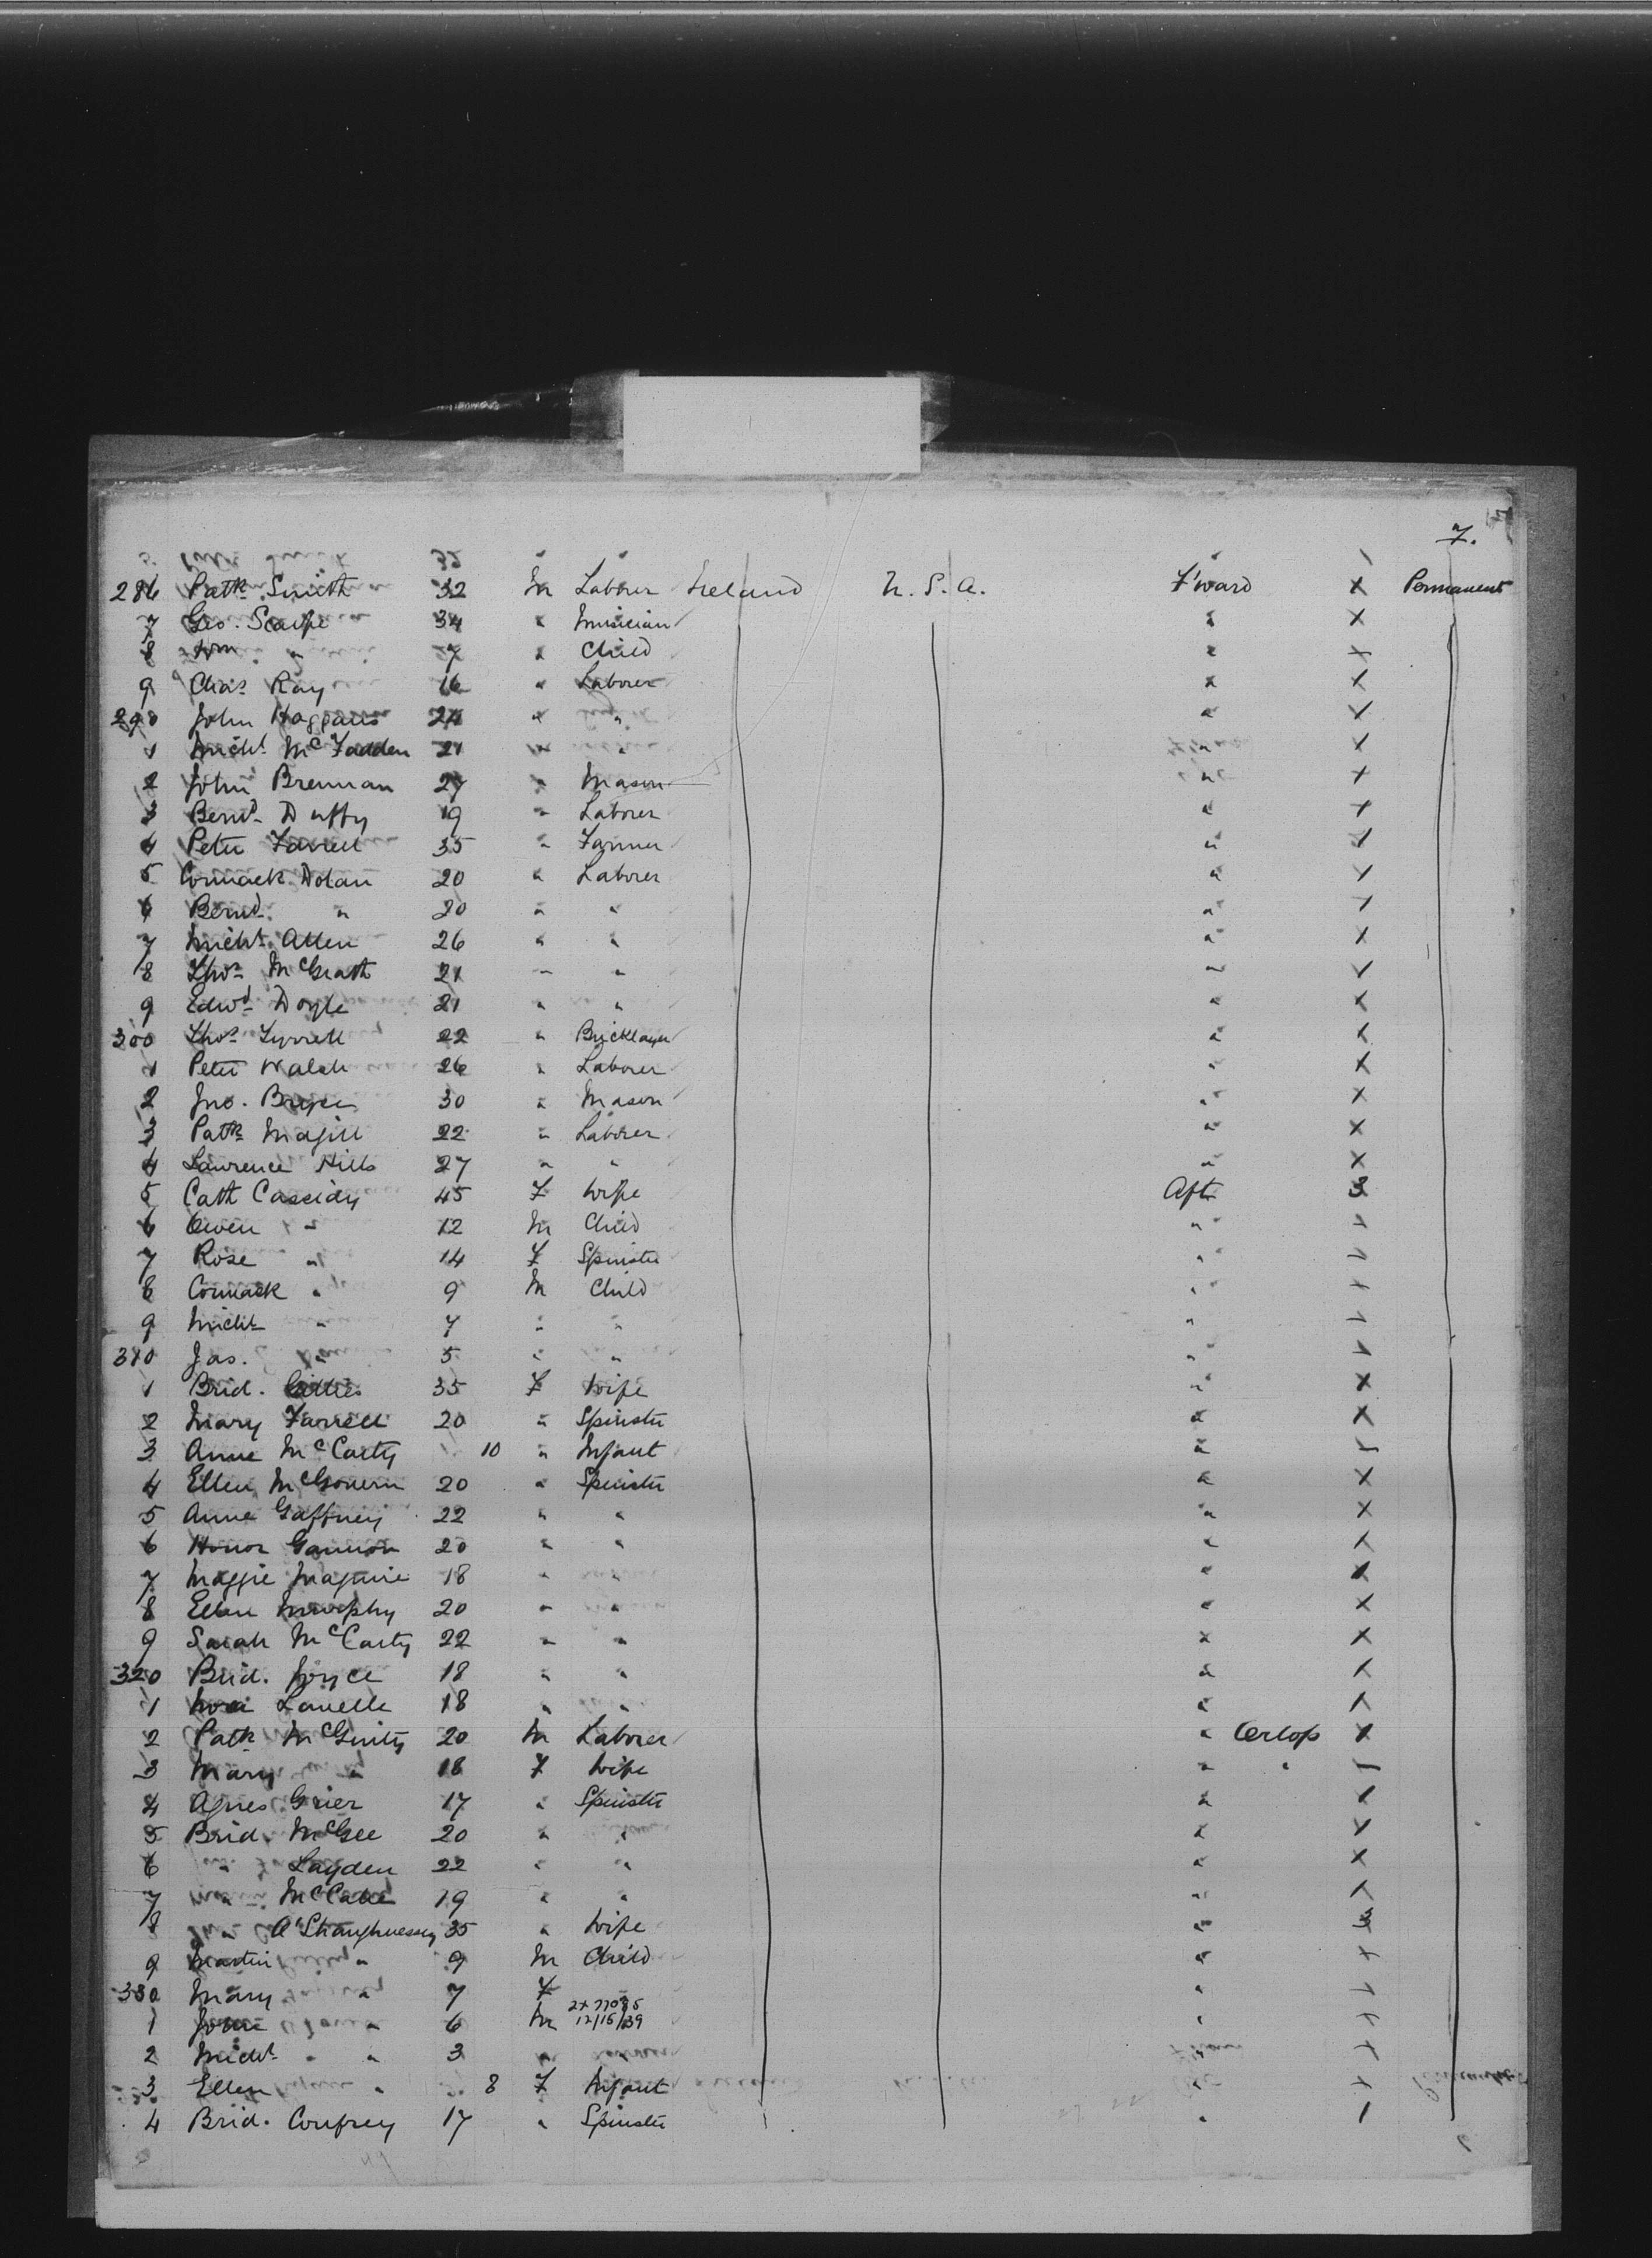 7.
286 Patk Smith 32 M Laborer Ireland U.S.A. F'ward X Permanent
7 Geo. Scaife 34 " Musician " X
8 Wm " 7 " Child "
9 Chas Ray 16 " Laborer " X
290 John Haggans 24 " " " X
1 Michl McFadden 21 " " " X
2 John Brennan 27 " Mason " X
3 Bernd Duffy 19 " Laborer " X
4 Peter Farrell 35 " Farmer " X
5 Cormack Dolan 20 " Laborer " X
6 Bernd " 20 " " " X
7 Michl Allen 26 " " " X
8 Thos McGrath 21 " " " X
9 Edwd Doyle 21 " " " X
300 Thos Tyrrell 22 " Bricklayer " X
1 Peter Walsh 26 " Laborer " X
2 Jno. 30 " Mason " X
3 Patk Magill 22 " Laborer " X
4 Lawrence Hills 27 " " " X
5 Cath Cassidy 45 F Wife Aft 3
6 Owen " 12 M Child "
7 Rose " 14 F Spinster "
8 Cormack " 9 M Child "
9 Michl " 7 " " "
310 Jas. " 5 " " "
1 Brid. 35 F Wife " X
2 Mary Farrell 20 " Spinster " X
3 Anne McCarty 10 " Infant "
4 Ellen McGovern 20 " Spinster " X
5 Anne Gaffney 22 " " " X
6 Honor Gannon 20 " " " X
7 Maggie Maguire 18 " " " X
8 Ellen Murphy 20 " " " X
9 Sarah McCarty 22 " " " X
320 Brid. Joyce 18 " " " X
1 Nora Lavelle 18 " " " X
2 Patk McGinity 20 M Laborer " Orlop X
3 Mary " 18 F Wife " "
4 Agnes Grier 17 " Spinster " X
5 Brid. McGee 20 " " " X
6 " Layden 22 " " " X
7 " McCabe 19 " " " X
8 " O'Shaughnessy 35 " Wife " 3
9 Martin " 9 M Child "
330 Mary " 7 F "
1 John " 6 M 12/15/39 "
2 Michl " 3 " " "
3 Ellen " 8 F Infant "
4 Brid. Confrey 17 " Spinster "